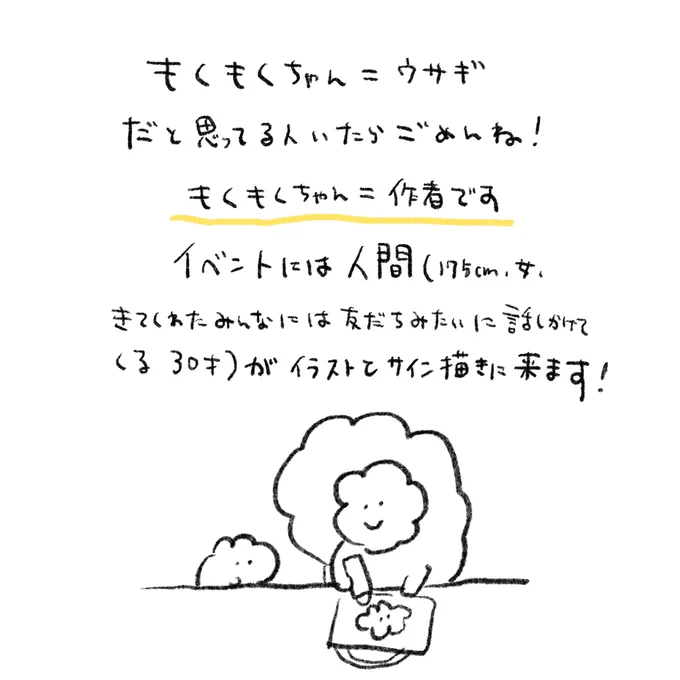 もくもくちゃん＝ウサギ
だと思ってる人いたらごめんね！
もくもくちゃん＝作者です
イベントには人間（175cm、女、
きてくれたみんなには友だちみたいに話しかけて
くる 30才）が イラストとサイン描きに来ます！